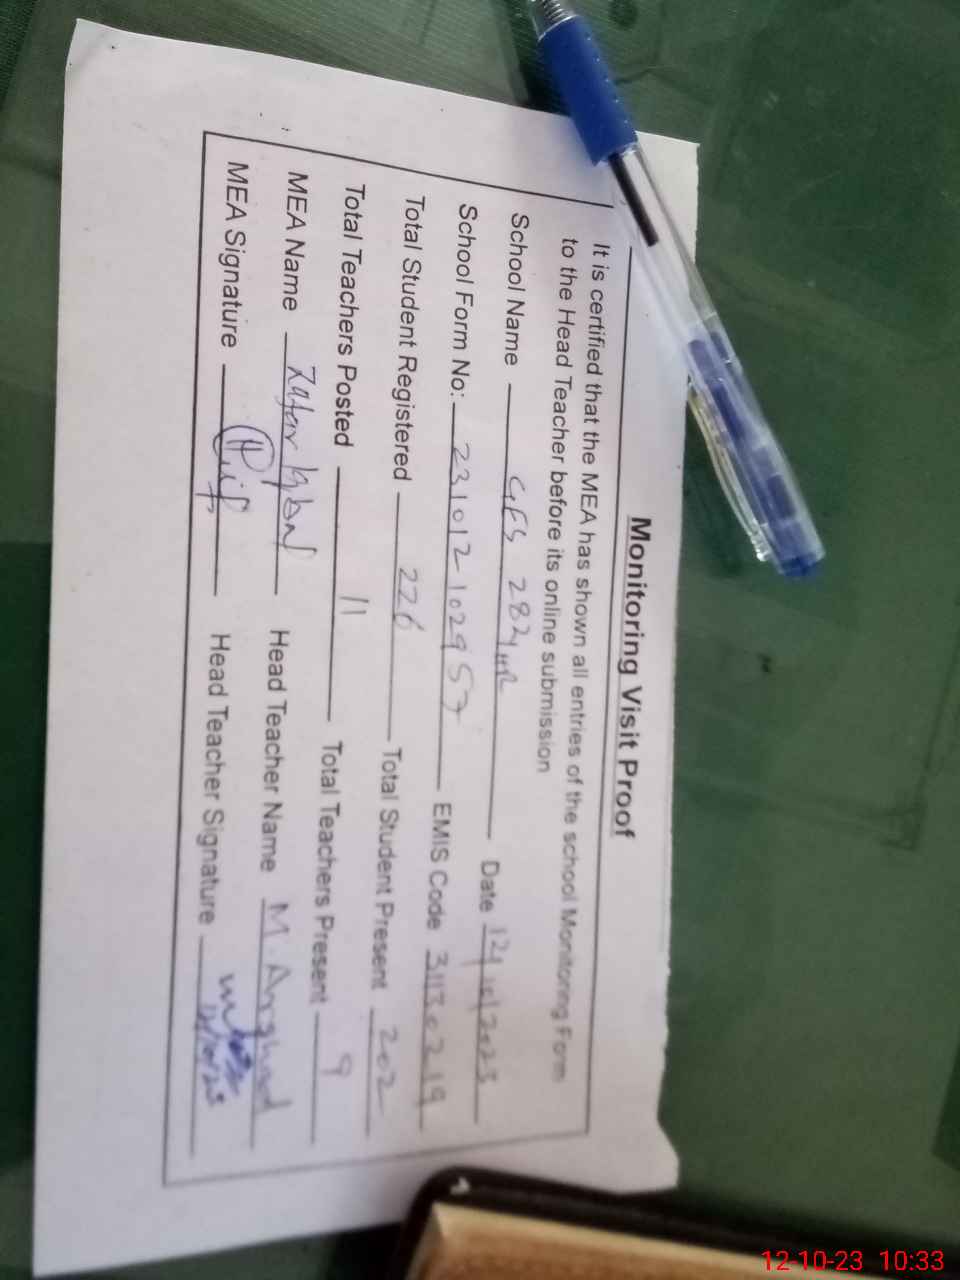 Monitoring Visit Proof
It is certified that the MEA has shown all entries of the school Monitoring Form
to the Head Teacher before its online submission
School Name GES 282/HR Date 12/10/2023
School Form No: 231012102957 EMIS Code 31130219
Total Student Registered 226 Total Student Present 202
Total Teachers Posted 11 Total Teachers Present 9
MEA Name Zafar Iqbal Head Teacher Name M. Arshad
MEA Signature Head Teacher Signature
12-10-23 10:33